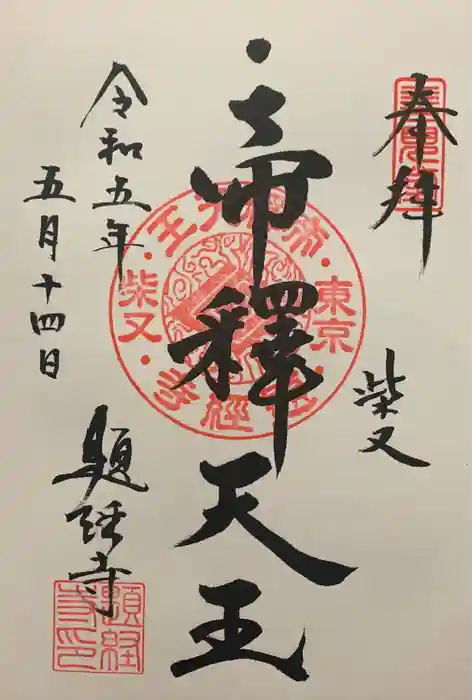 奉拝
柴又
帝釋天王
令和五年
五月十四日
題経寺
帝釈天王
東京
柴又
題経寺印